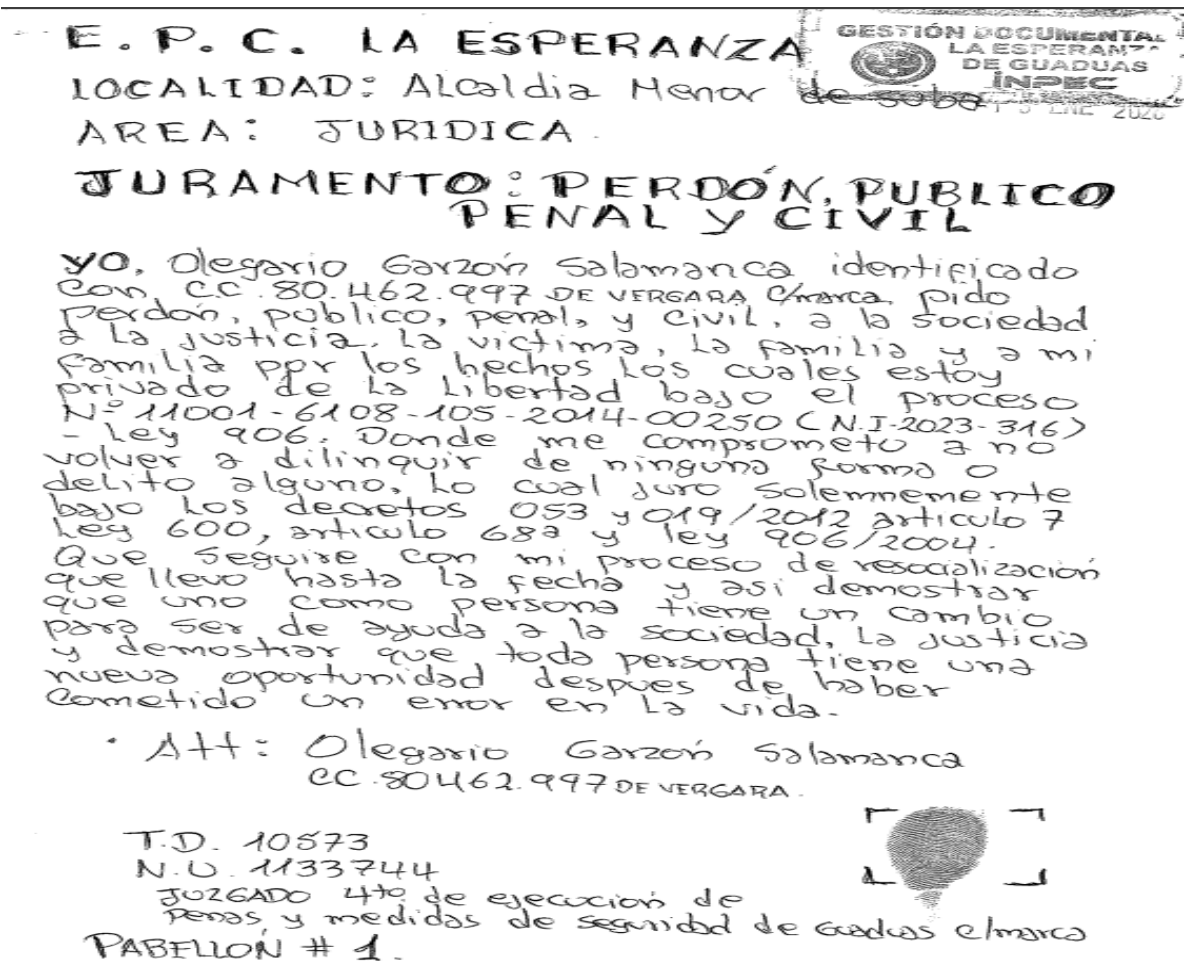 E.P.C. LA ESPERANZA
GESTIÓN DOCUMENTAL
LA ESPERANZA
DE GUADUAS
INPEC
ENE 2020
LOCALIDAD: Alcaldia Menor de suba
AREA: JURIDICA.
JURAMENTO: PERDÓN, PUBLICO
PENAL y CIVIL
YO, Olegario Garzón Salamanca identificado
con, C.C. 80.462.997 DE VERGARA C/marca, pido
perdón, publico, penal, y civil, a la sociedad
a la justicia, la victima, la familia y a mi
familia por los hechos los cuales estoy
privado de la libertad bajo el proceso
Nº 11001-6108-105-2014-00250 (N.I-2023-316)
- Ley 906. Donde me comprometo a no
volver a dilinquir de ninguna forma o
delito alguno, Lo cual juro solemnemente
bajo los decretos 053 y 019/2012 articulo 7
Ley 600, articulo 68a y ley 906/2004.
Que seguire con mi proceso de resocialización
que llevo hasta la fecha y asi demostrar
que uno como persona tiene un cambio
para ser de ayuda a la sociedad, La Justicia
y demostrar que toda persona tiene una
nueva oportunidad despues de haber
Cometido un error en La vida.
· Att: Olegario Garzón Salamanca
CC.80462.997 DE VERGARA.
T.D. 10573
N.U. 1133744
JUZGADO 4to de ejecución de
Penas y medidas de seguridad de Guaduas C/marca
PABELLON # 1.